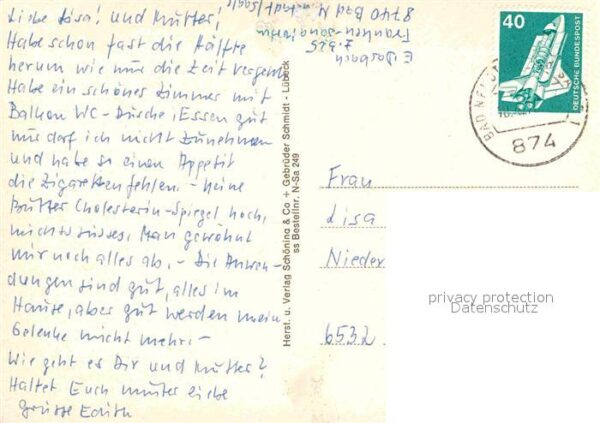 Liebe Lisa! und Mutter!
Habe schon fast die Hälfte
herum wie nur die Zeit vergeht
Habe ein schönes Zimmer mit
Balkon WC - Dusche, Essen gut
nur darf ich nicht Zunehmen
und habe so einen Appetit
die Zigaretten fehlen. - Keine
Butter Cholesterin-Spiegel hoch,
nichts süsses, Man gewöhnt
mir noch alles ab. - Die Anwen-
dungen sind gut, alles im
Hause, aber gut werden mein
Gelenke nicht mehr. -
Wie geht es Dir und Mutter?
Haltet Euch munter liebe
Grüsse Edith
E
Z.
Franken-
8740 Bad N
Herst. u. Verlag Schöning & Co + Gebrüder Schmidt - Lübeck
ss Bestellnr. N-Sa 249
40
DEUTSCHE BUNDESPOST
BAD
874
Frau
Lisa
Nieder
6532
privacy protection
Datenschutz